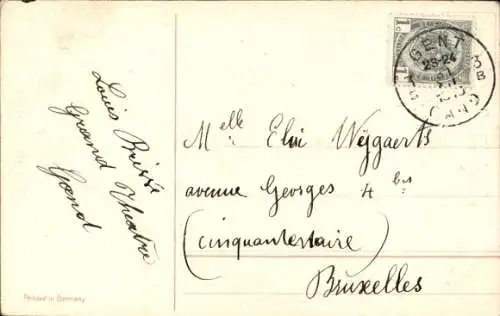 Louis Brisse
Grand Théatre
Gand
Melle Elvi Weygaerts
avenue Georges 4 bis
(cinquantenaire)
Bruxelles
GENT 3B
23-24
GAND
Printed in Germany